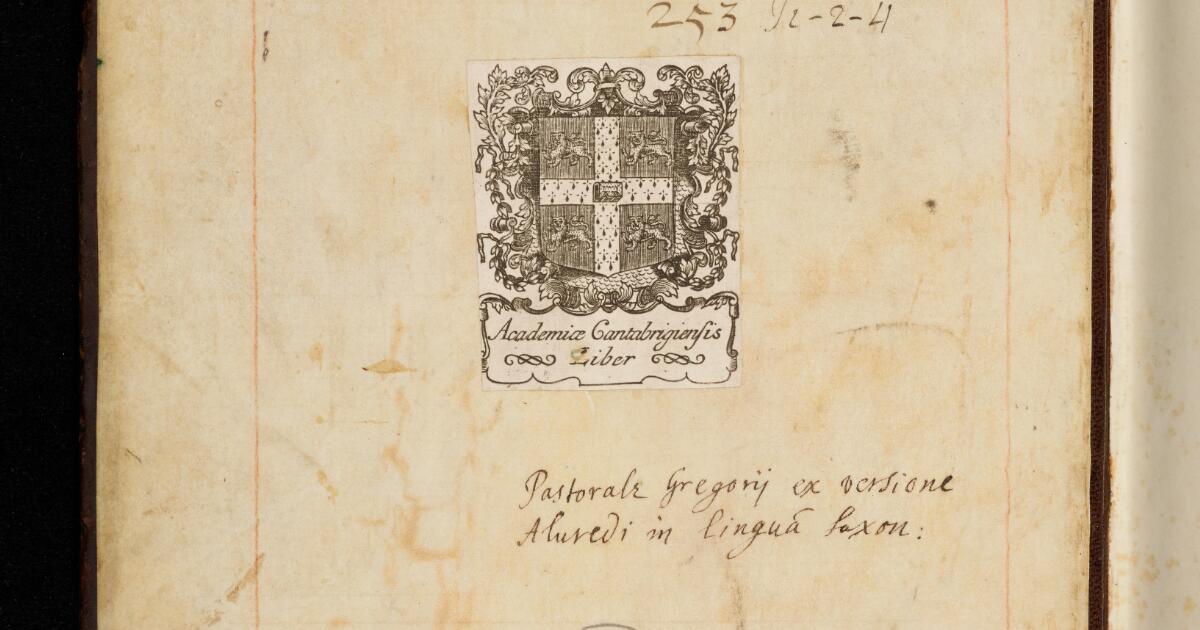 253 Ii-2-4
Academiæ Cantabrigienſis
Liber
Pastorale Gregorij ex versione
Aluredi in linguâ saxon: